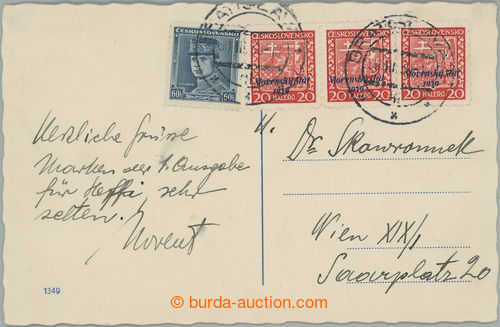 BRATISLAVA
ČESKOSLOVENSKO
60h 60h
ČESKOSLOVENSKO
Slovenský štát
1939
20 HALÉŘŮ 20
ČESKOSLOVENSKO
Slovenský štát
1939
20 HALÉŘŮ 20
ČESKOSLOVENSKO
Slovenský štát
1939
20 HALÉŘŮ 20
Herzliche Grüsse
Marken der 1. Ausgabe
für Heffi sehr
selten.
Novent
H.
Dr Skawronnek
Wien XIX/1
Saarplatz 20
1349
© burda-auction.com